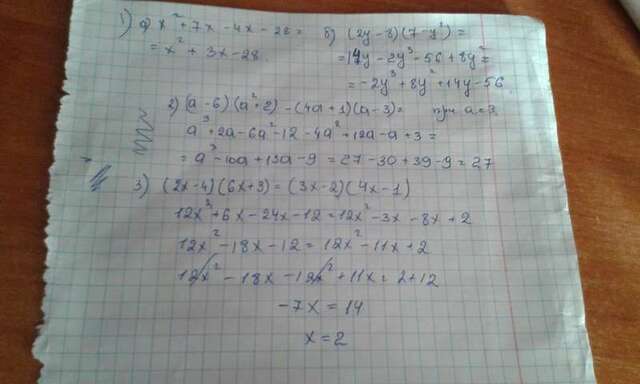 1) а) x² + 7x - 4x - 28 =
= x² + 3x - 28
б) (2y - 8)(7 - y²) =
= 14y - 2y³ - 56 + 8y² =
= -2y³ + 8y² + 14y - 56
2) (a - 6)(a² + 2) - (4a + 1)(a - 3) = при a = 3
a³ + 2a - 6a² - 12 - 4a² + 12a - a + 3 =
= a³ - 10a + 13a - 9 = 27 - 30 + 39 - 9 = 27
3) (2x - 4)(6x + 3) = (3x - 2)(4x - 1)
12x³ + 6x - 24x - 12 = 12x² - 3x - 8x + 2
12x² - 18x - 12 = 12x² - 11x + 2
12x² - 18x - 12x² + 11x = 2 + 12
-7x = 14
x = 2